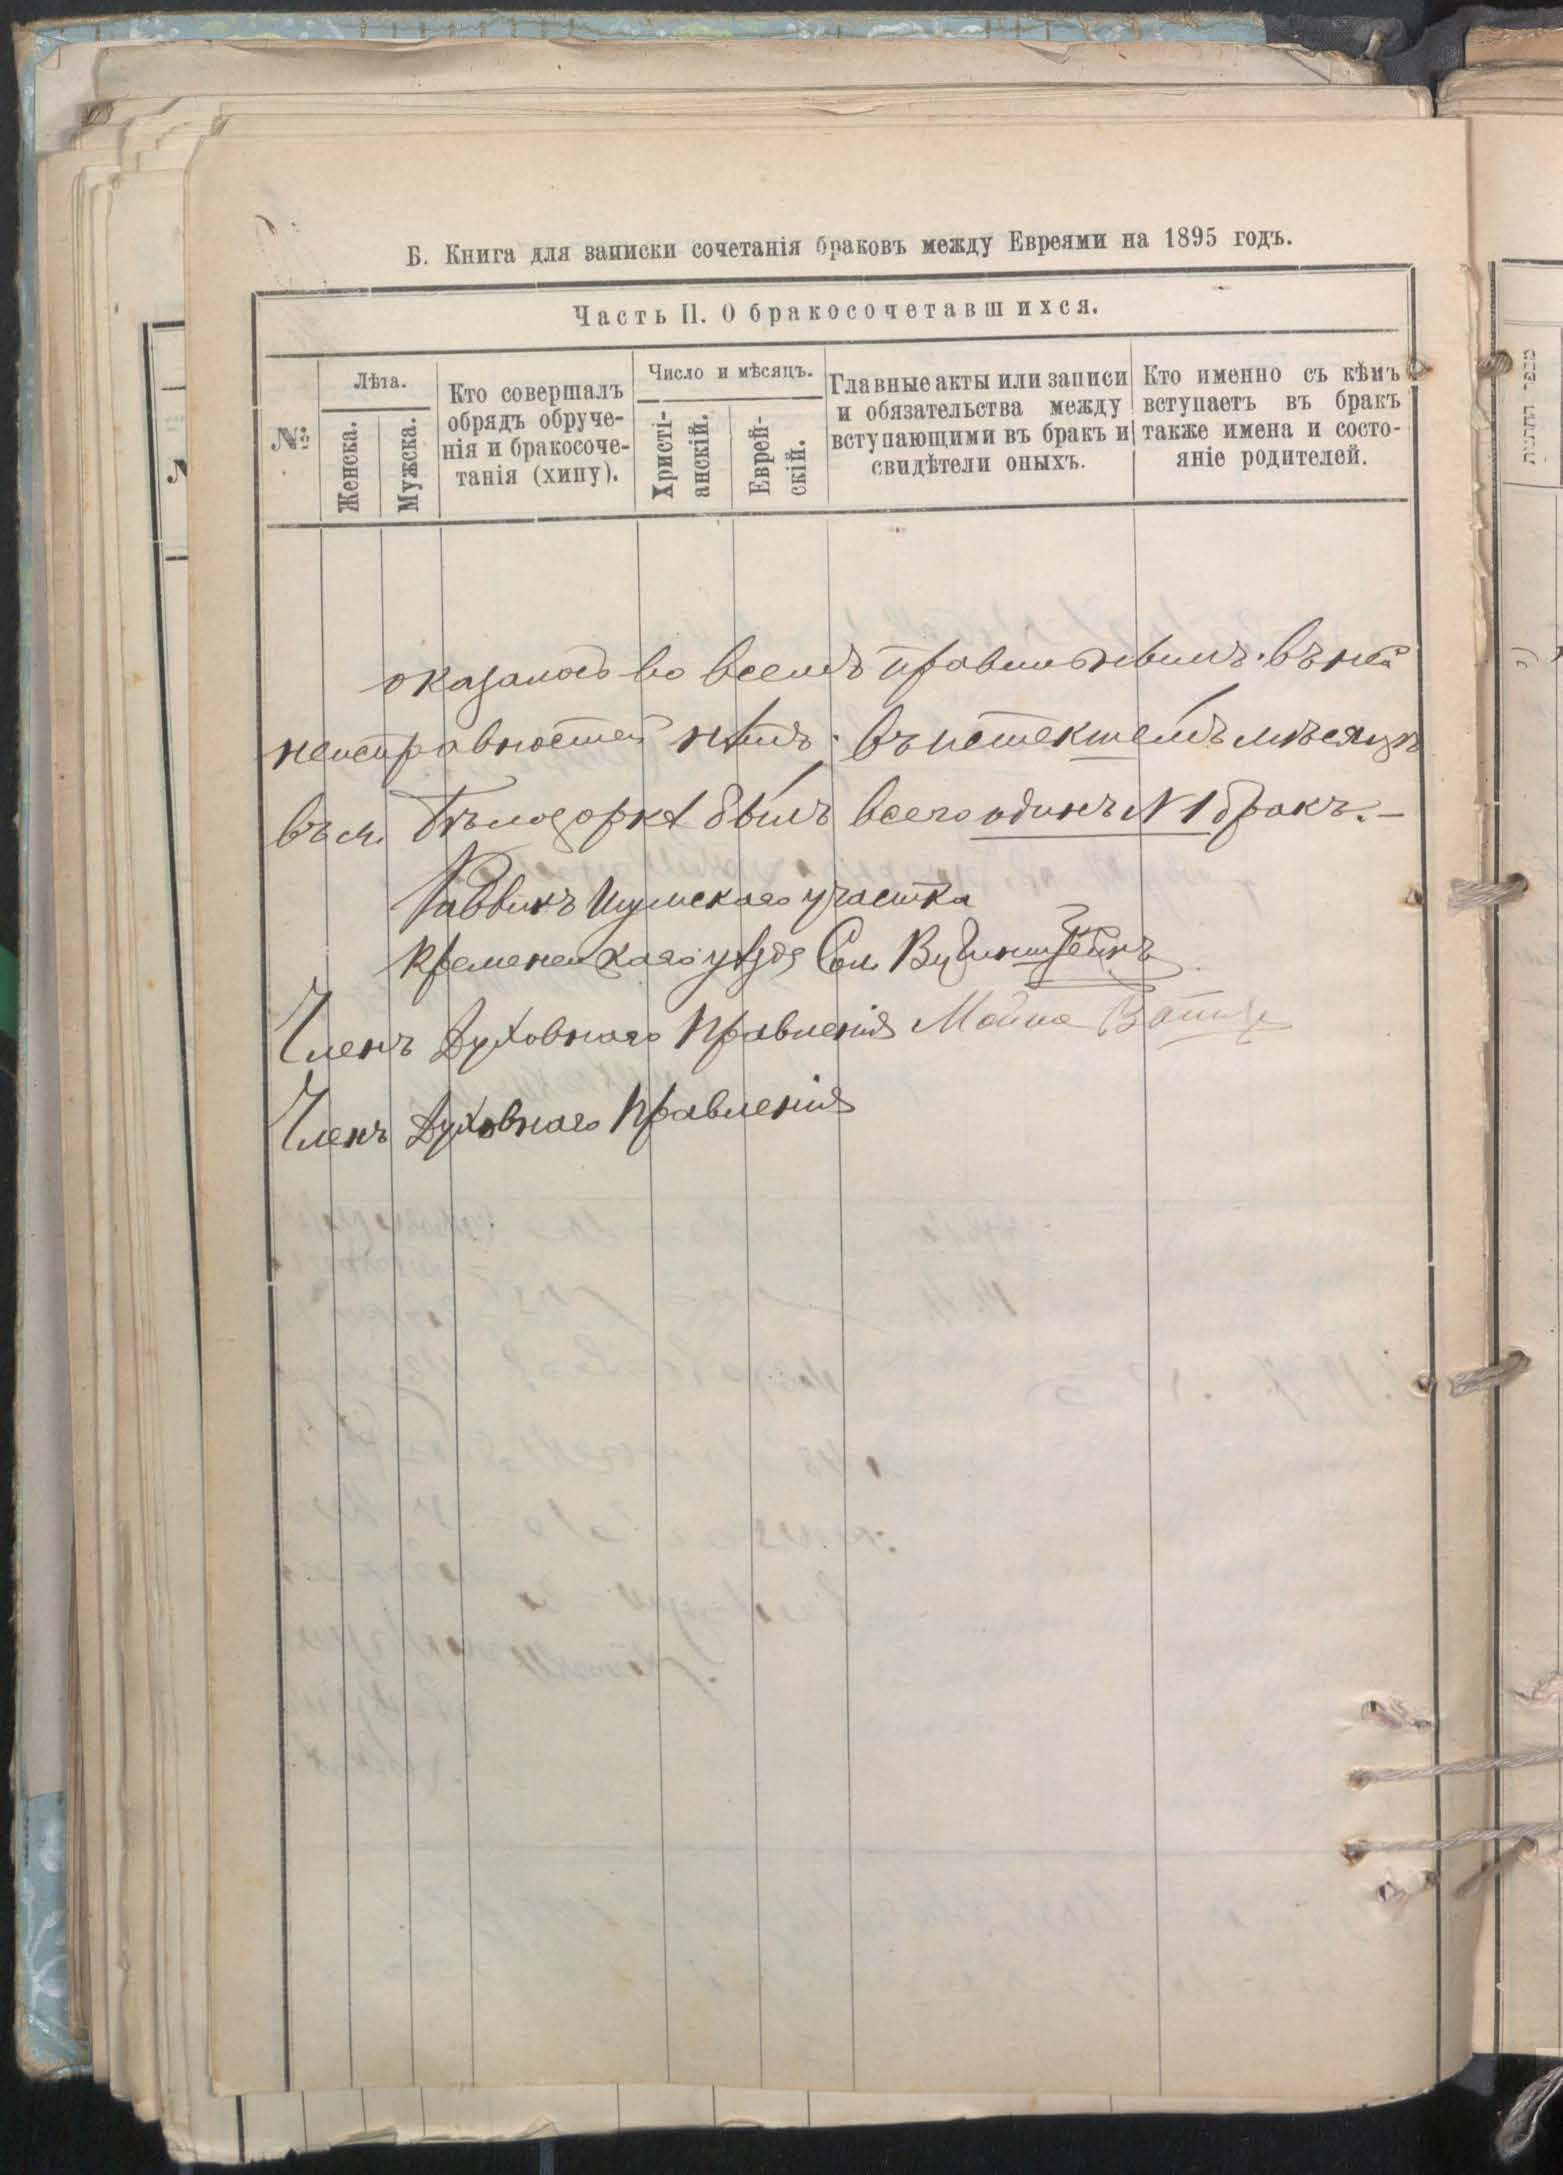 Б. Книга для записки сочетанія браковъ между Евреями на 1895 годъ.
Часть II. О бракосочетавшихся.
№
Лѣта.
Женска.
Мужска.
Кто совершалъ
обрядъ обруче-
нія и бракосоче-
танія (хипу).
Число и мѣсяцъ.
Христі-
анскій.
Еврей-
скій.
Главные акты или записи
и обязательства между
вступающими въ бракъ и
свидѣтели оныхъ.
Кто именно съ кѣмъ
вступаетъ въ бракъ
также имена и состо-
яніе родителей.
оказалось во всемъ правильнымъ. въ ней
неисправностей нѣтъ; въ истекшемъ мѣсяцѣ
въ м. Бѣлозоркѣ былъ всего одинъ N 1 бракъ.—
Раввинъ Шумскаго участка
Кременецкаго уѣзда Сол.
Членъ Духовнаго Правленія
Членъ Духовнаго Правленія